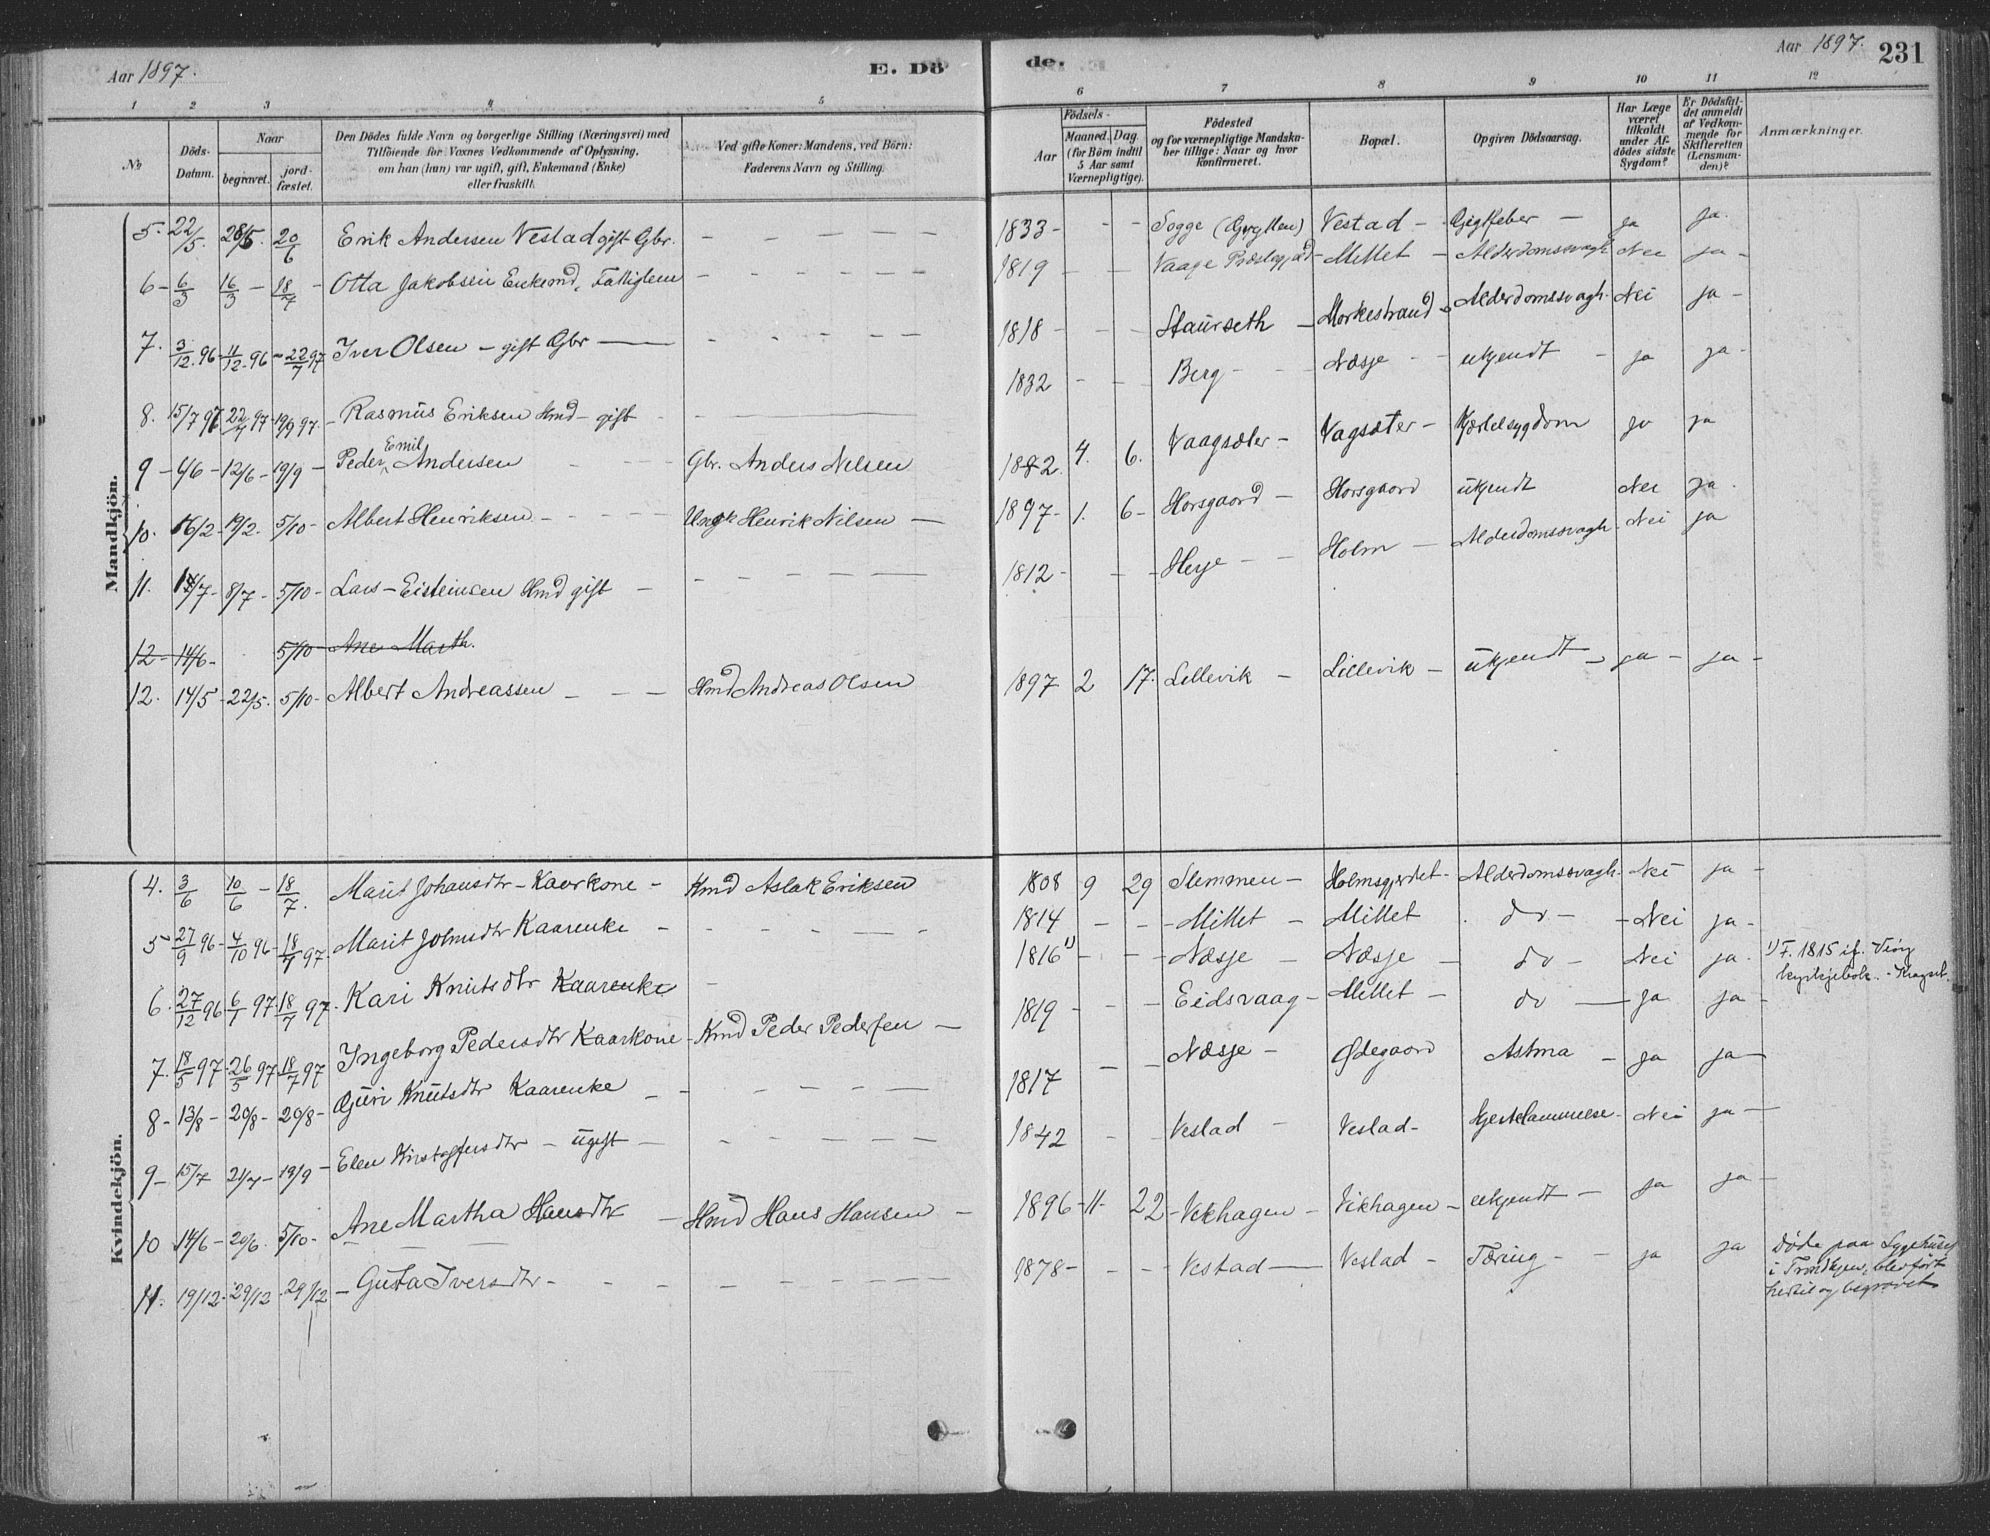 Aar 1897.
E. Dö
1 2 3 4 5
No
Döds-Datum.
Naar
begravet.
jord-fæstet.
Den Dödes fulde Navn og borgerlige Stilling (Næringsvei) med
Tilföiende for Voxnes Vedkommende af Oplysning,
om han (hun) var ugift, gift, Enkemand (Enke)
eller fraskilt.
Ved gifte Koner: Mandens, ved Börn:
Faderens Navn og Stilling.
Mandkjön.
5. 22/5. 28/5. 20/6 Erik Andersen Vestad gift Gbr. — — — — —
6 - 6/3 16/3 - 18/7 - Otta Jakobsen Enkemd, Fattiglem — — — — —
7. 3/12.96 - 11/12.96 - 22/7 97 Iver Olsen - gift Gbr — — — — —
8. 15/7 97 22/7 97 - 19/9 97. - Rasmus Eriksen Hmd - gift -
9 - 4/6 - 12/6 - 19/9 - Peder Emil Andersen - - - Gbr. Anders Nelsen
10. 16/2 - 19/2. 5/10 - Albert Henriksen - - - - Ungk Henrik Nilsen —
11. 14/7 - 8/7 - 5/10 - Lars - Eisteinsen Hmd gift - — — — — —
12 - 14/6 - 5/10 Ane Marth.
12. 14/5 - 22/5. 5/10 - Albert Andreassen - - - Hmd Andreas Olsen
Kvindekjön.
4. 3/6 10/6 - 18/7. Marit Johansdtr - Kaarkone - Kmd Aslak Eriksen
5 - 27/9 96 - 4/10 96 - 18/7 97. Marit Johnsdtr Kaarenke - - - - - -
6. 27/12 96 6/1 97. 18/7 97. Kari Knutsdtr Kaarenke -
7. 18/5 97. 26/5 97. 18/7 97 Ingeborg Pedersdtr Kaarkone - Kmd Peder Pedersen —
8 - 13/8 - 20/8 - 20/8 - Guri Knutsdtr Kaarenke - - - - - - -
9 - 15/7 21/7 - 19/9 - Elen Kristoffersdtr - ugift - - - - - -
10 14/6 - 20/6. 5/10 - Ane Martha Hansdtr - Hmd Hans Hansen -
11. 19/12 - 29/12 - 29/12 - Gusta Iversdtr - - - - - - -
de.
Aar 1897. 231
6 7 8 9 10 11 12
Födsels-
Aar
Maaned.
Dag.
(for Börn indtil
5 Aar samt
Værnepligtige).
Födested
og for værnepligtige Mandska-
ber tillige: Naar og hvor
konfirmeret.
Bopæl.
Opgiven Dödsaarsag.
Har Læge
været
tilkaldt
under Af-
dödes sidste
Sygdom?
Er Dödsfal-
det anmeldt
af Vedkom-
mende for
Skifteretten
(Lensman-
den)?
Anmærkninger.
1833 - - - Sogge (Grytten) Vestad - Gigtfeber - ja ja.
1819 - - Vaage Præstegjæld - Mittet - Alderdomssvagh. Nei ja -
1818 - - - Staurseth - Morkestrand Alderdomssvagh. Nei ja -
1832 - - - Berg - - Næsje - - ukjendt - ja ja -
1882. 4. 6. Vaagsæter - Vagsæter - Kjertelsygdom ja ja
1897 - 1. 6 - Horsgaard - Horsgaard ukjendt Nei ja.
1812 - - - Herje - - Holm - Alderdomssvagh - Nei ja
1897 2 17. Lillevik - Lillevik - ukjendt - ja - ja -
1808 9 29 Slemmen - Holmsgjerdet - Alderdomssvagh. Nei ja -
1814 - - - Mittet - Mittet . do - - Nei ja -
1816 1) - - - Næsje - Næsje - do - Nei ja - 1) F. 1815 if. Veøy
kyrkjebok. -
1819 - - - Eidsvaag - Mittet - do — ja ja -
1817 - - Næsje - Ødegaard Astma - ja ja —
1842 - - Vestad - Vestad - Hjertelammelse - Nei ja —
1896 - 11 - 22 - Vikhagen - Vikhagen - ukjendt - ja ja -
1878 - - - - Vestad — Vestad - Tæring - - ja ja Döde paa Sygehuset
i Trondhjem, blev fört
hertil og begravet